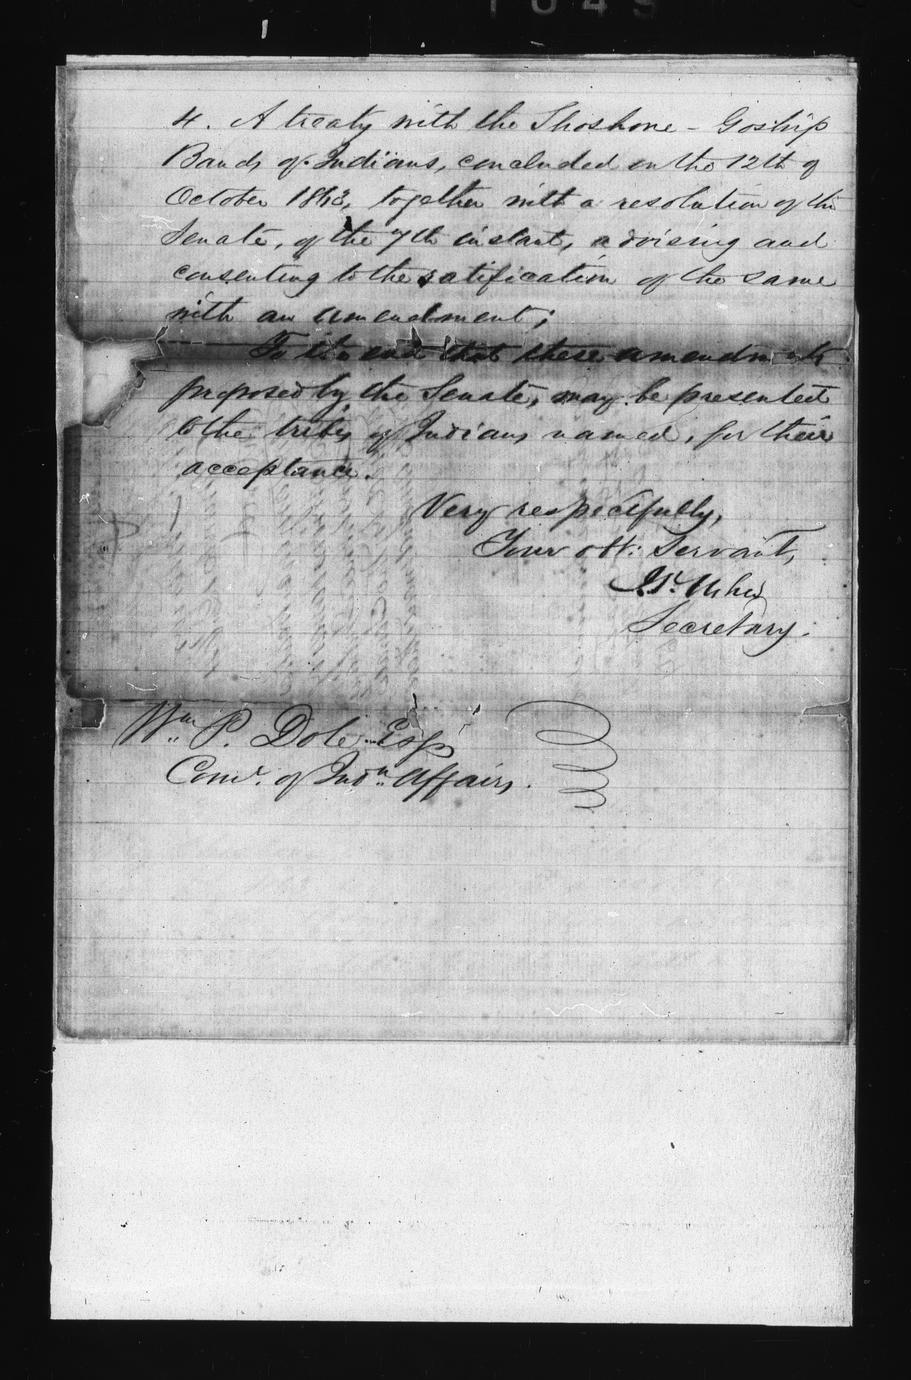 4. A treaty with the Shoshone - Goship
Bands of Indians, concluded on the 12th of
October 1863, together with a resolution of the
Senate, of the 7th instant, advising and
consenting to the ratification of the same
with an amendment;
To the end that these amendments
proposed by the Senate, may be presented
to the tribes of Indians named, for their
acceptance.
Very respectfully,
Your obt: Servant,
J. P. Usher
Secretary.
Wm. P. Dole Esqr
Comr. of Indn. Affairs.